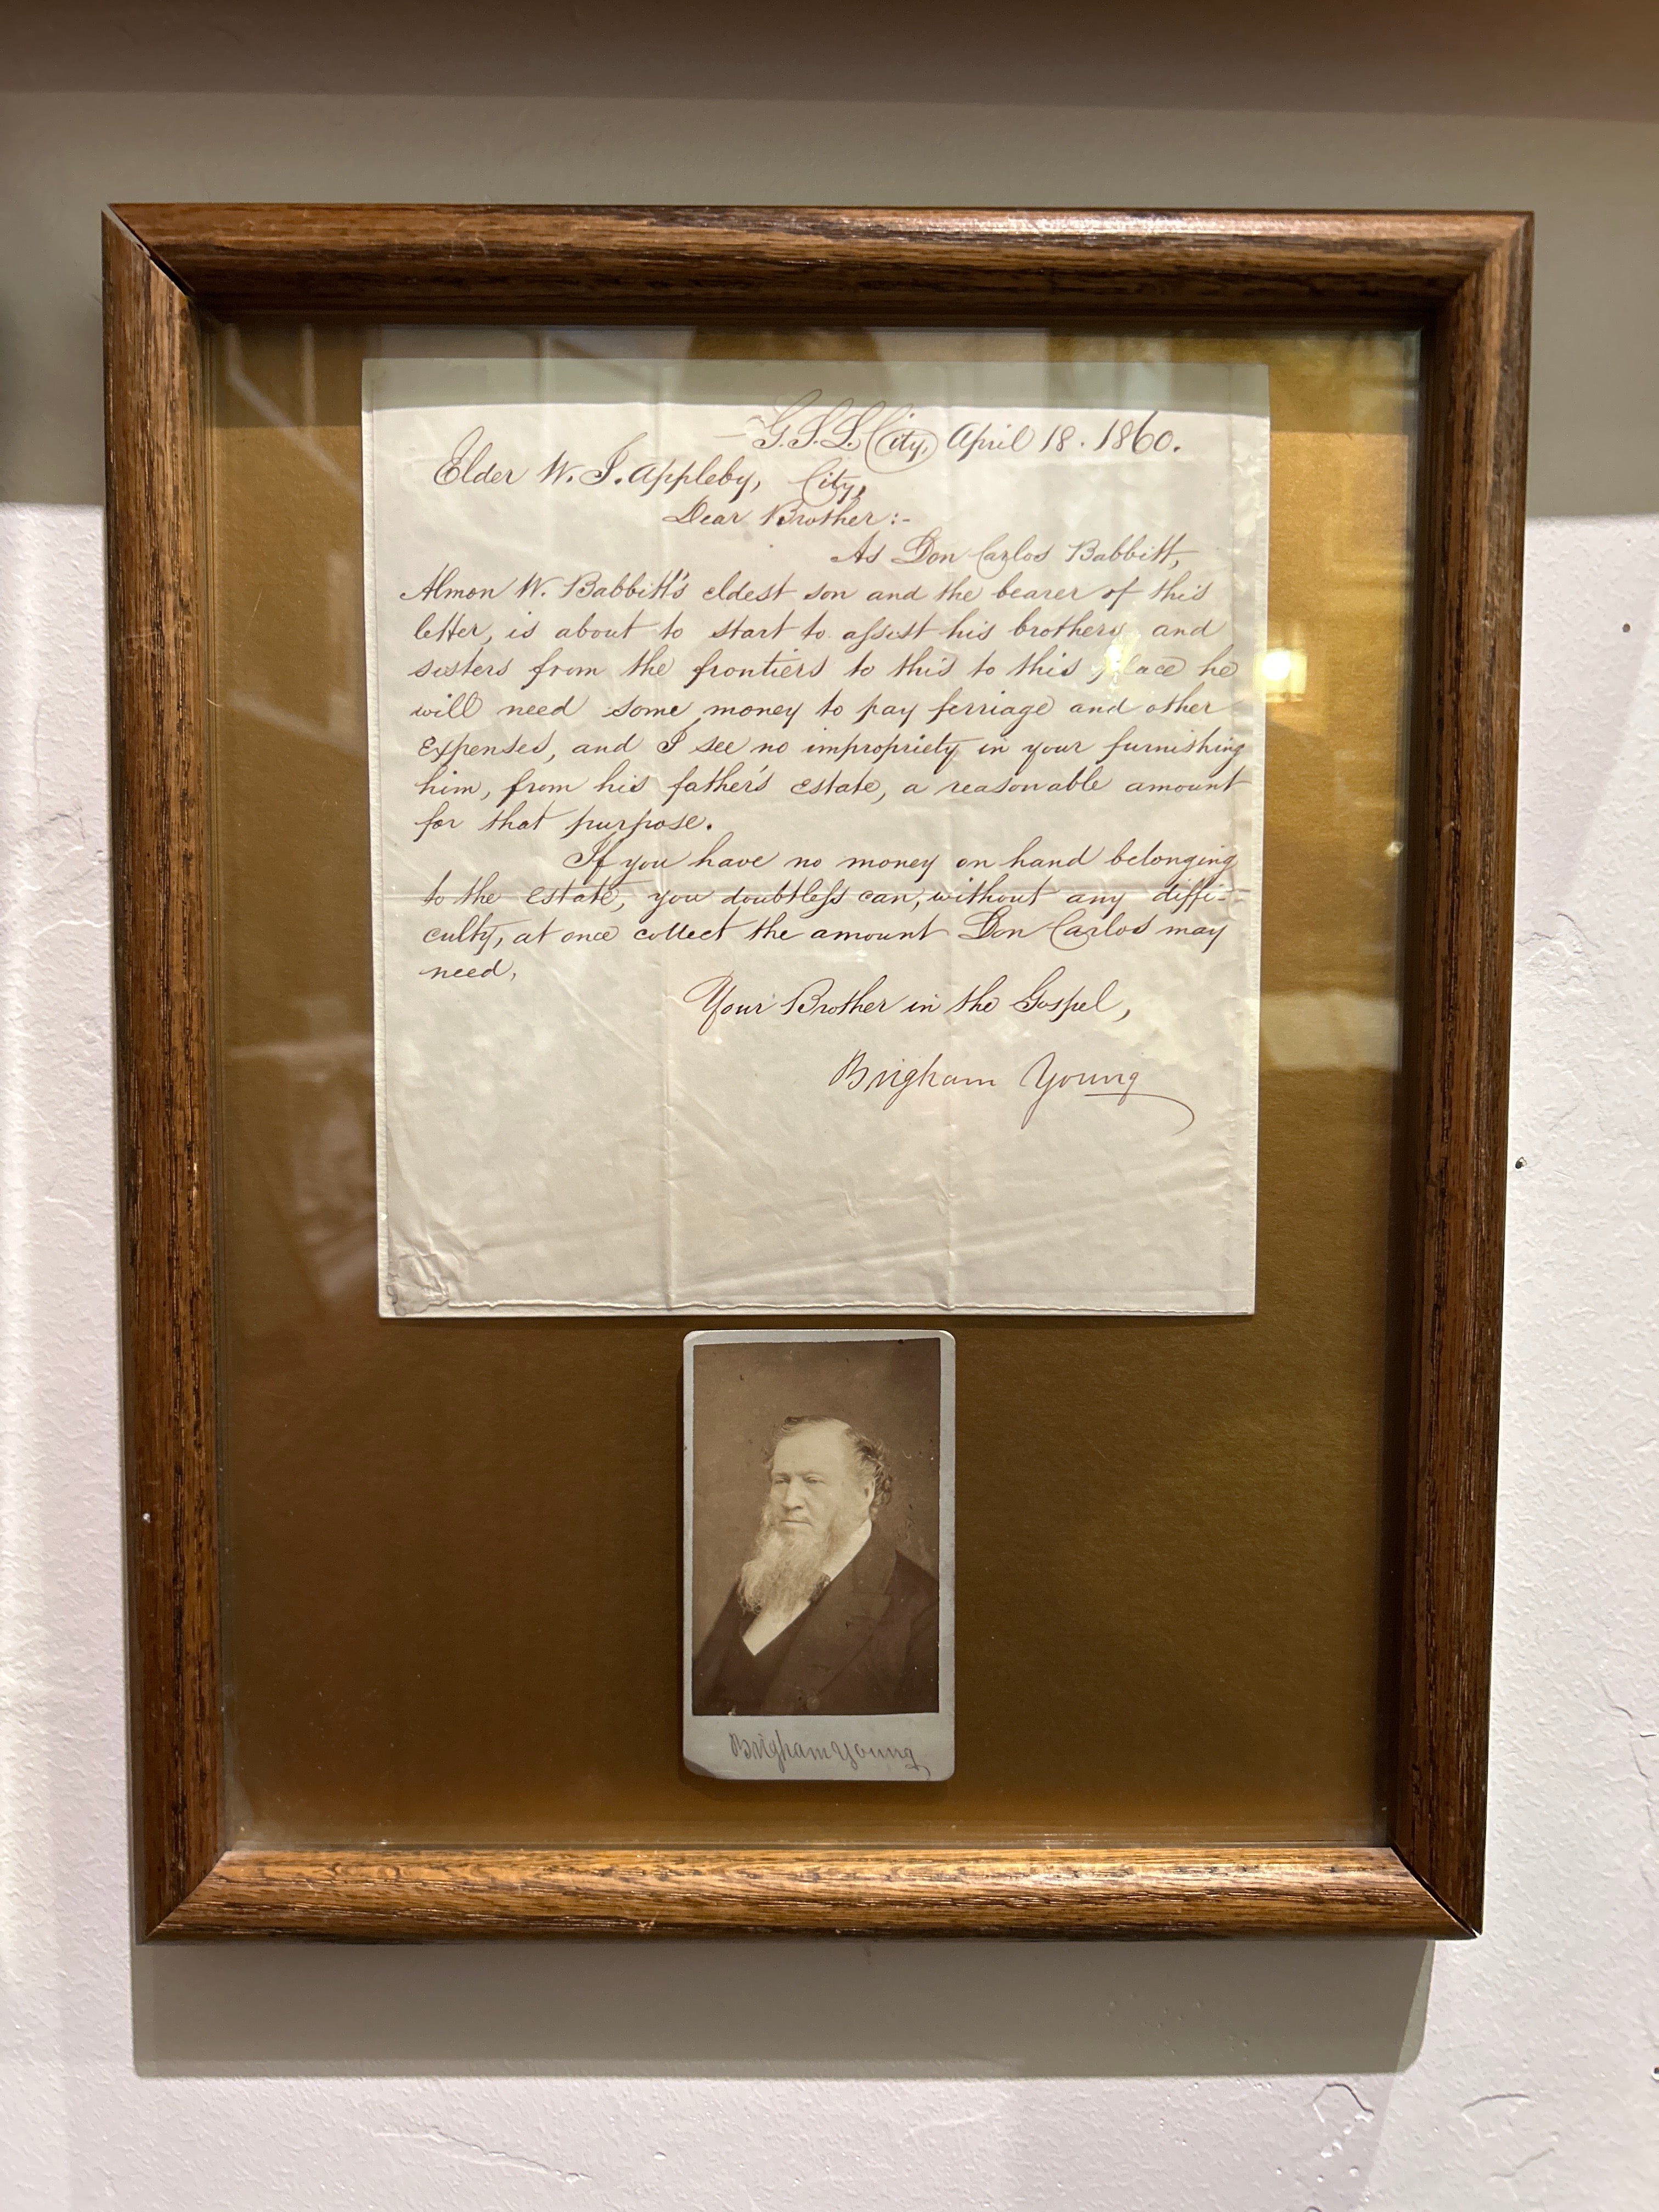 G.S.L. City, April 18. 1860.
Elder W. I. Appleby, City,
Dear Brother:-
As Don Carlos Babbitt,
Almon W. Babbitt's eldest son and the bearer of this
letter, is about to start to assist his brothers and
sisters from the frontiers to this to this place he
will need some money to pay ferriage and other
expenses, and I see no impropriety in your furnishing
him, from his father's estate, a reasonable amount
for that purpose.
If you have no money on hand belonging
to the estate, you doubtless can, without any diffi-
culty, at once collect the amount Don Carlos may
need,
Your Brother in the Gospel,
Brigham Young
Brigham Young